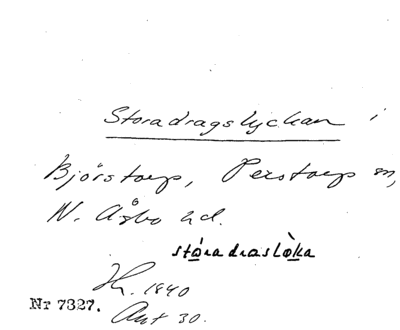 Storadragslyckan i
Bjärstorp, Perstorp sn,
N. Åsbo hd.
stóradraslòka
1840
Nr 7327.
Akt 30.